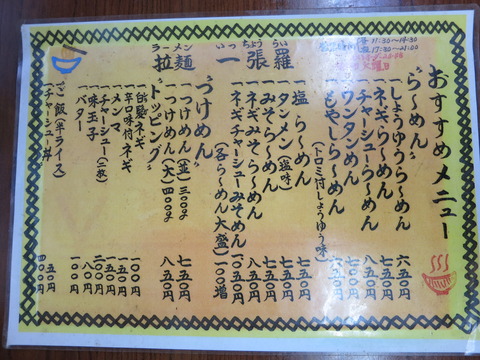 ラーメン いっちょうらい
拉麺 一張羅
11:30~14:30
17:30~21:00
おすすめメニュー
〝らーめん〟
しょうゆらーめん 六五〇円
ネギらーめん 七五〇円
チャーシューらーめん 八五〇円
ワンタンめん 七五〇円
もやしらーめん 七五〇円
(トロミ付しょうゆ味)
塩らーめん 七五〇円
タンメン(塩味) 七五〇円
みそらーめん 七五〇円
ネギみそらーめん 八五〇円
ネギチャーシューみそめん 一〇五〇円
(各らーめん大盛)一〇〇増
〝つけめん〟
つけめん(並)三〇〇g 七五〇円
つけめん(大)四〇〇g 八五〇円
〝トッピング〟
白髪ネギ 一〇〇円
辛口味付ネギ 一五〇円
メンマ 一〇〇円
チャーシュー(二枚) 二〇〇円
味玉子 八〇円
バター 一〇〇円
ご飯(半ライス)
チャーシュー丼 四〇〇円